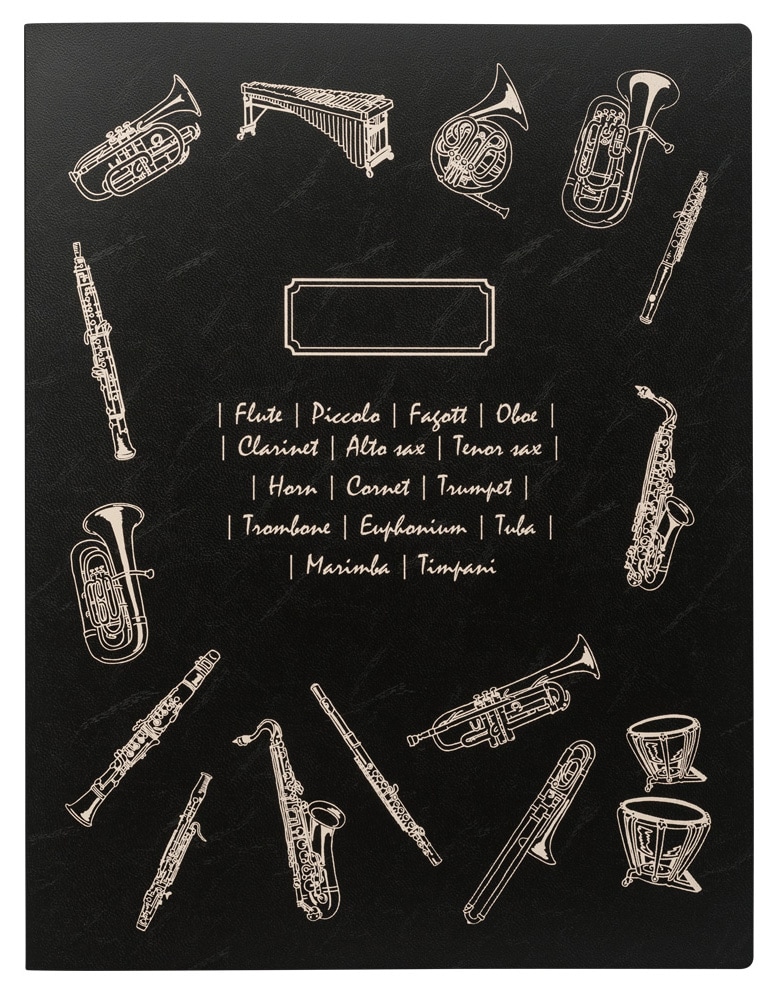 | Flute | Piccolo | Fagott | Oboe |
| Clarinet | Alto sax | Tenor sax |
| Horn | Cornet | Trumpet |
| Trombone | Euphonium | Tuba |
| Marimba | Timpani